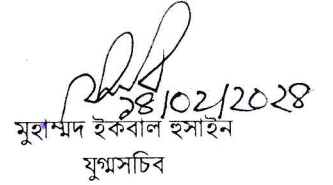 ১৪/০২/২০২৪
মুহাম্মদ ইকবাল হুসাইন
যুগ্মসচিব